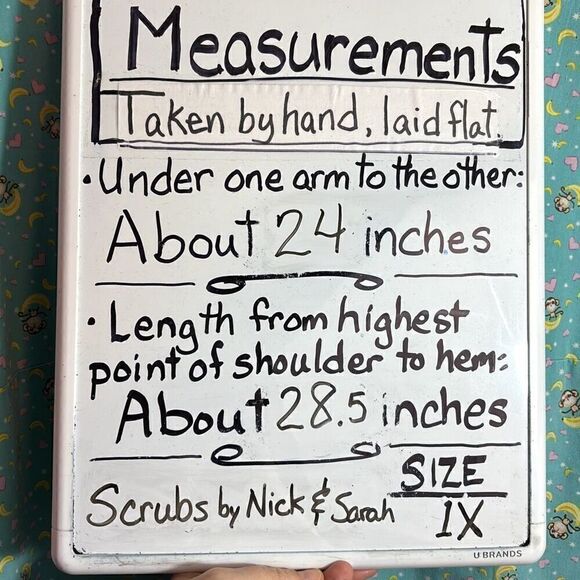 Measurements
Taken by hand, laid flat.
• Under one arm to the other:
About 24 inches
• Length from highest
point of shoulder to hem:
About 28.5 inches
Scrubs by Nick & Sarah
SIZE
1X
U BRANDS